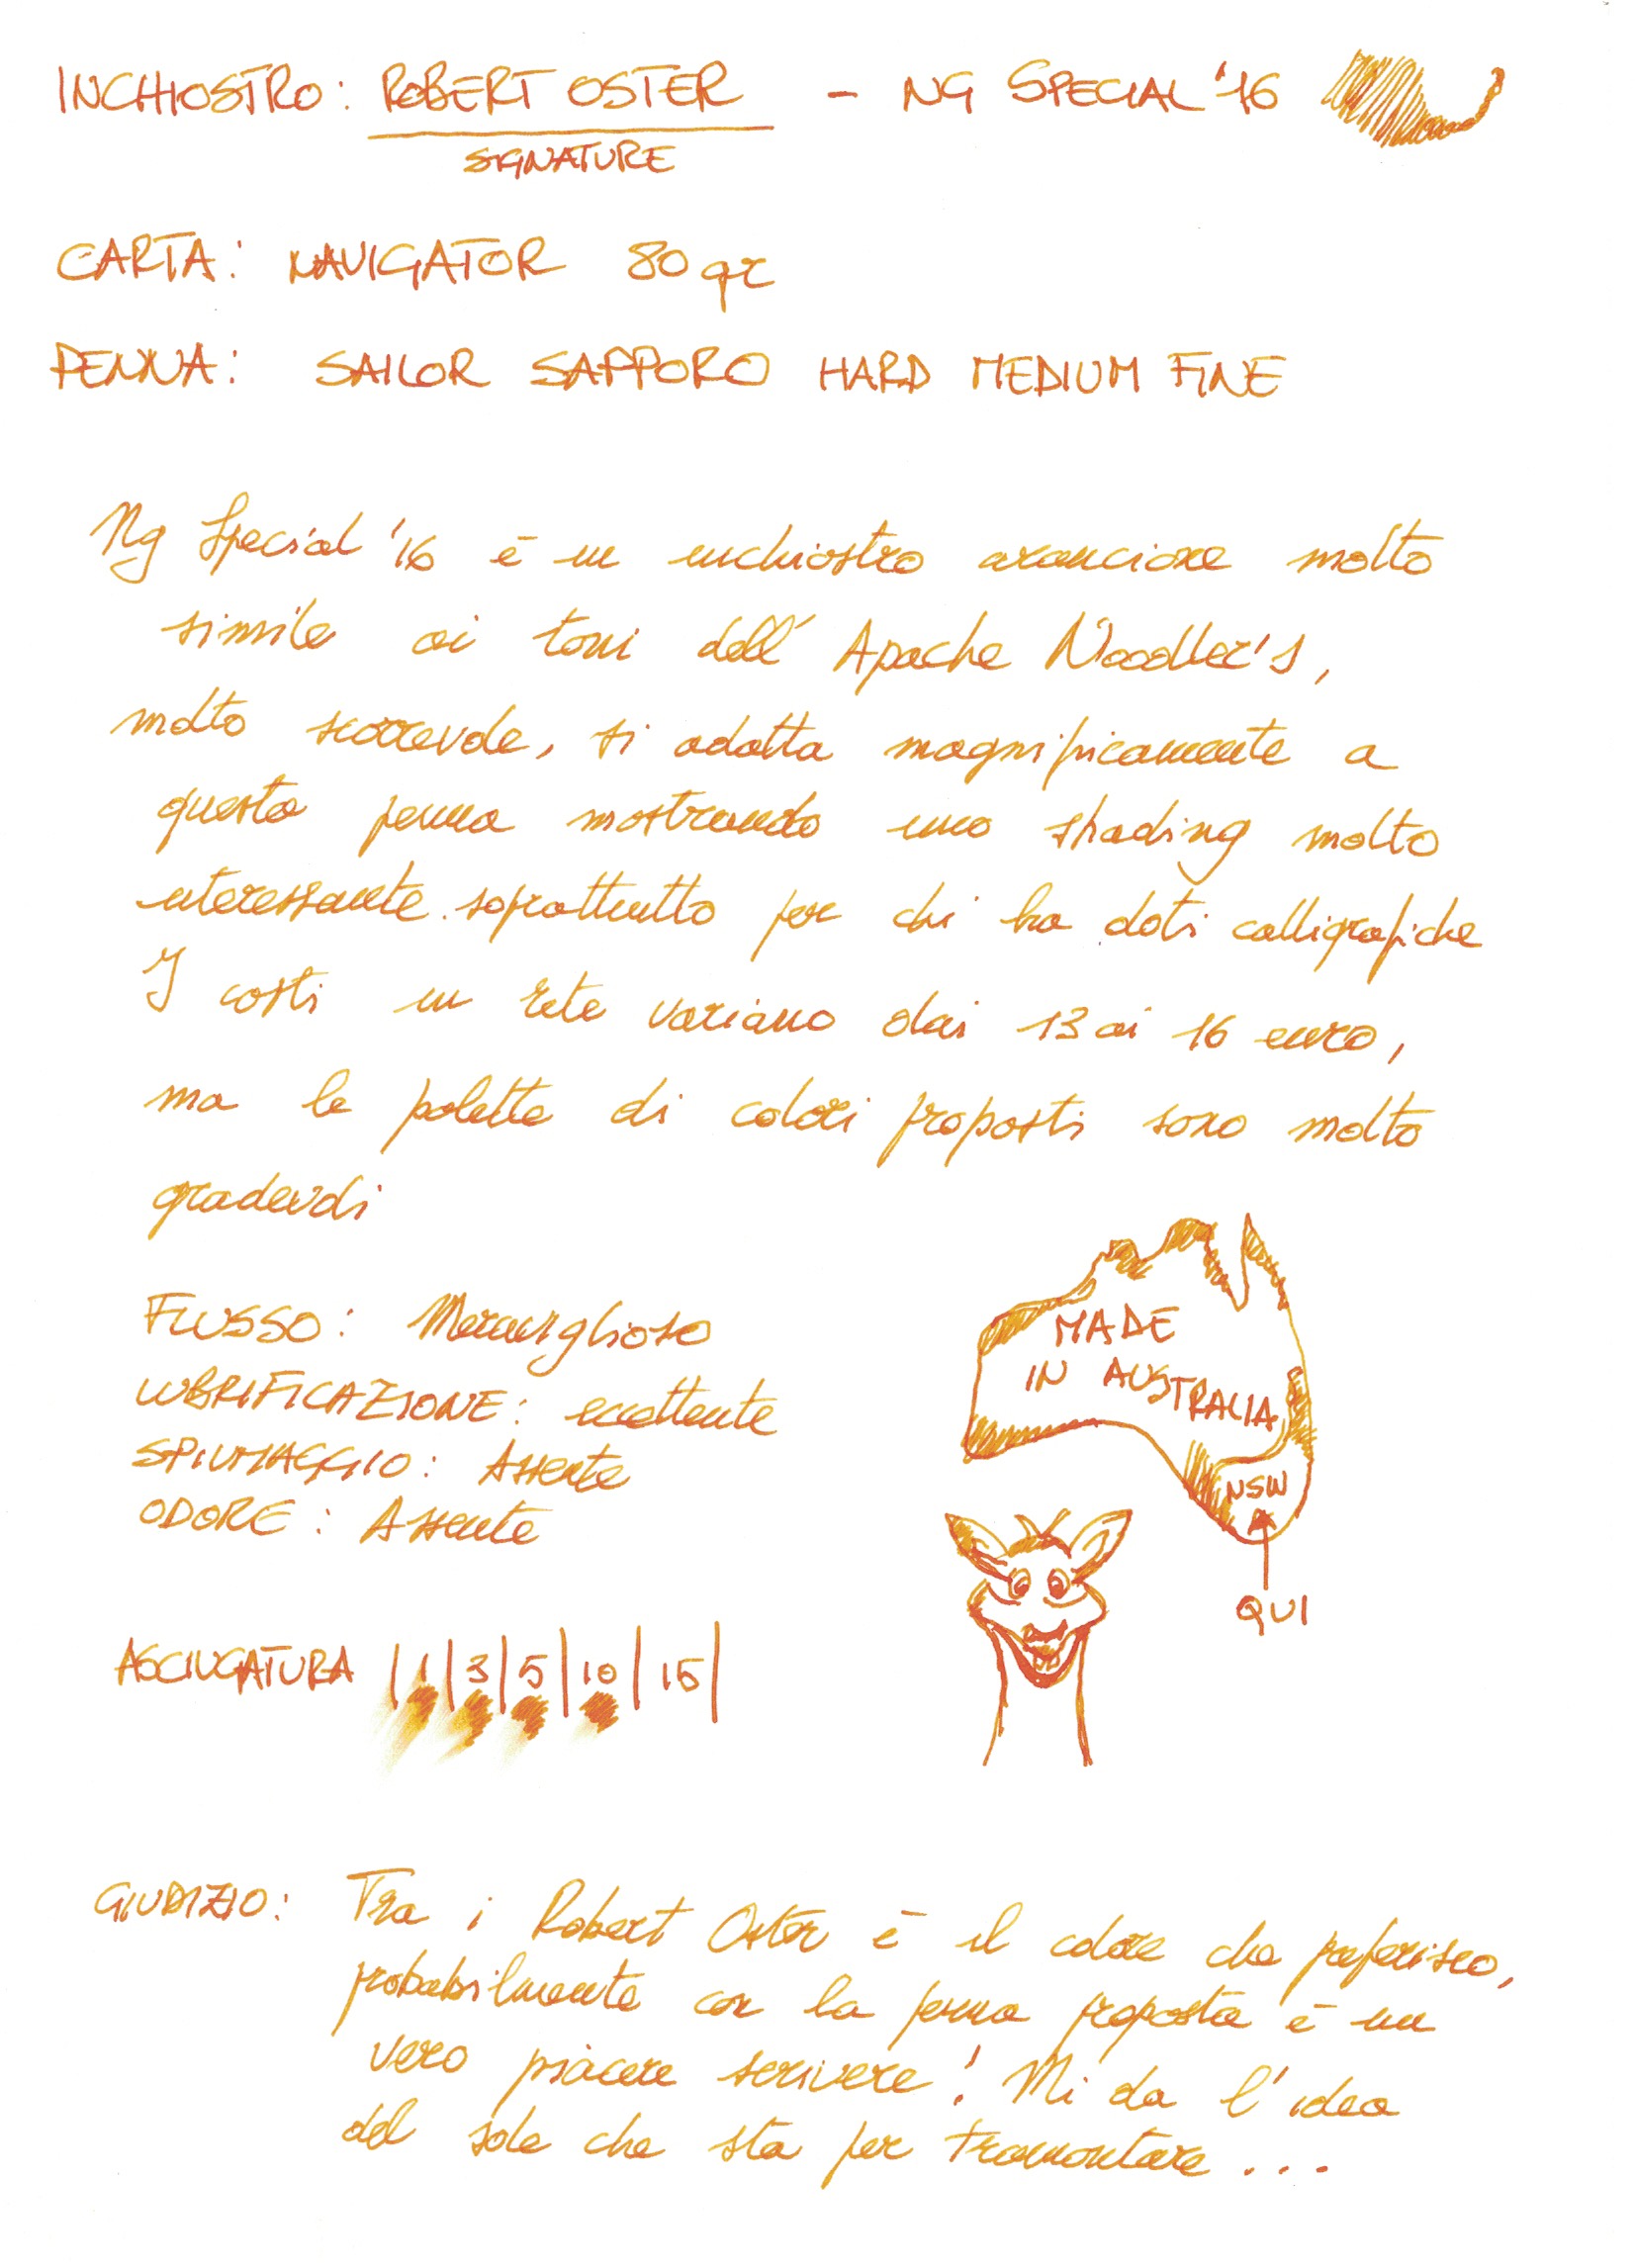 INCHIOSTRO: ROBERT OSTER - NG SPECIAL '16
SIGNATURE
CARTA: NAVIGATOR 80 gr
PENNA: SAILOR SAPPORO HARD MEDIUM FINE
Ng Special '16 è un inchiostro arancione molto
simile ai toni dell'Apache Noodler's,
molto scorrevole, si adatta magnificamente a
questa penna mostrando uno shading molto
interessante soprattutto per chi ha doti calligrafiche
I costi in rete variano dai 13 ai 16 euro,
ma le palette di colori proposti sono molto
gradevoli
FLUSSO: Meraviglioso
LUBRIFICAZIONE: eccellente
SPIUMAGGIO: Assente
ODORE: Assente
MADE
IN AUSTRALIA
NSW
QUI
ASCIUGATURA |1|3|5|10|15|
GIUDIZIO: Tra i Robert Oster è il colore che preferisco,
probabilmente con la penna proposta è un
vero piacere scrivere! Mi da l'idea
del sole che sta per tramontare...